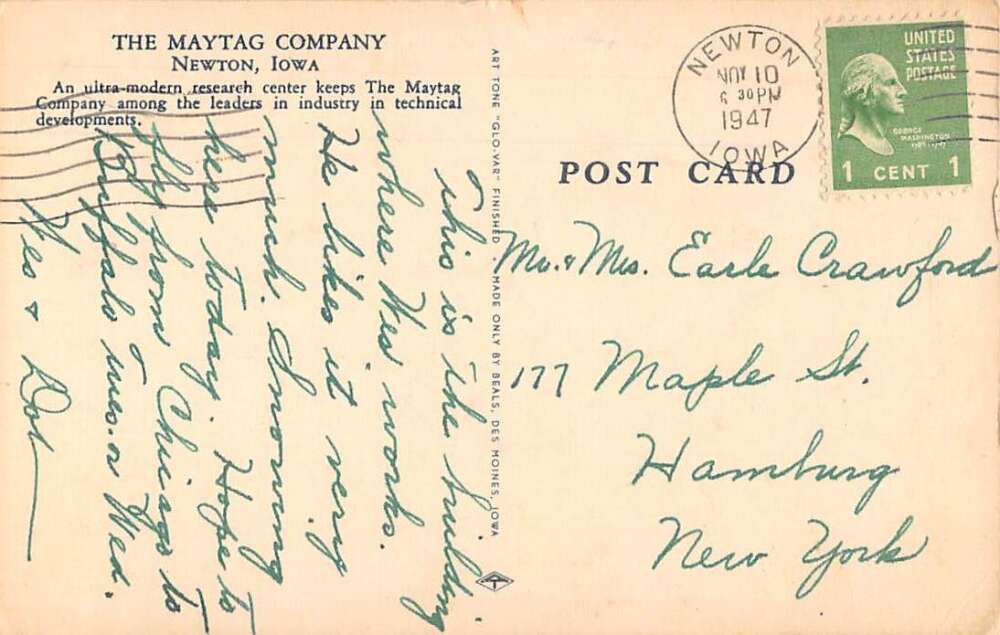 THE MAYTAG COMPANY
NEWTON, IOWA
An ultra-modern research center keeps The Maytag
Company among the leaders in industry in technical
developments.
This is the building
where Wes works.
He likes it very
much. Snowing
here today. Hope to
fly from Chicago to
Buffalo Tues. or Wed.
Wes & Dot
ART TONE "GLO-VAR" FINISHED
MADE ONLY BY BEALS, DES MOINES, IOWA
NEWTON
NOV 10
6 30 PM
1947
IOWA
UNITED
STATES
POSTAGE
GEORGE
WASHINGTON
1 CENT 1
POST CARD
Mr. & Mrs. Earle Crawford
177 Maple St.
Hamburg
New York